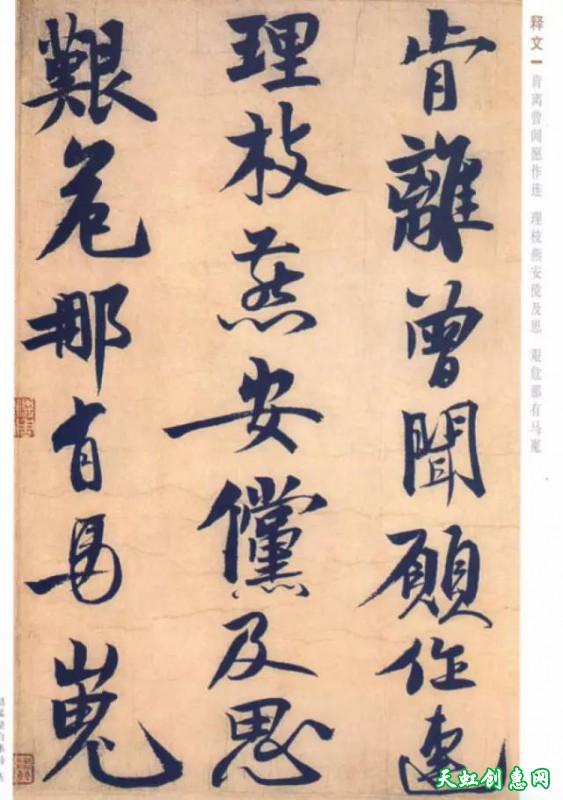 释文一 肯离曾闻愿作连 理枝燕安傥及思 艰危那有马嵬
肯離曾聞願作連
理枝燕安儻及思
艱危那有馬嵬
天虹创惠网